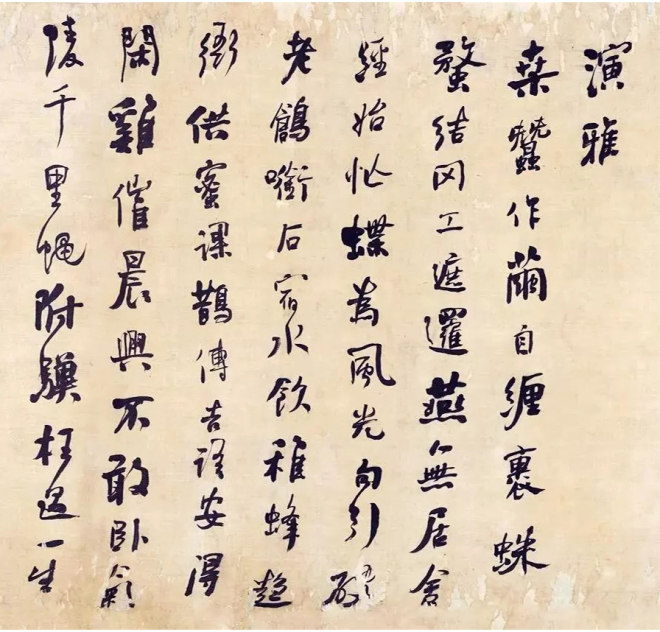 演雅
桒蠶作繭自纏裹蛛
蝥結网工遮邏燕無居舍
經始忙蝶為風光句引破
老鶬銜石宿水飲稚蜂趨
衙供蜜課鵲傳吉語安得
閑雞催晨興不敢臥氣
陵千里蠅附驥枉過一生